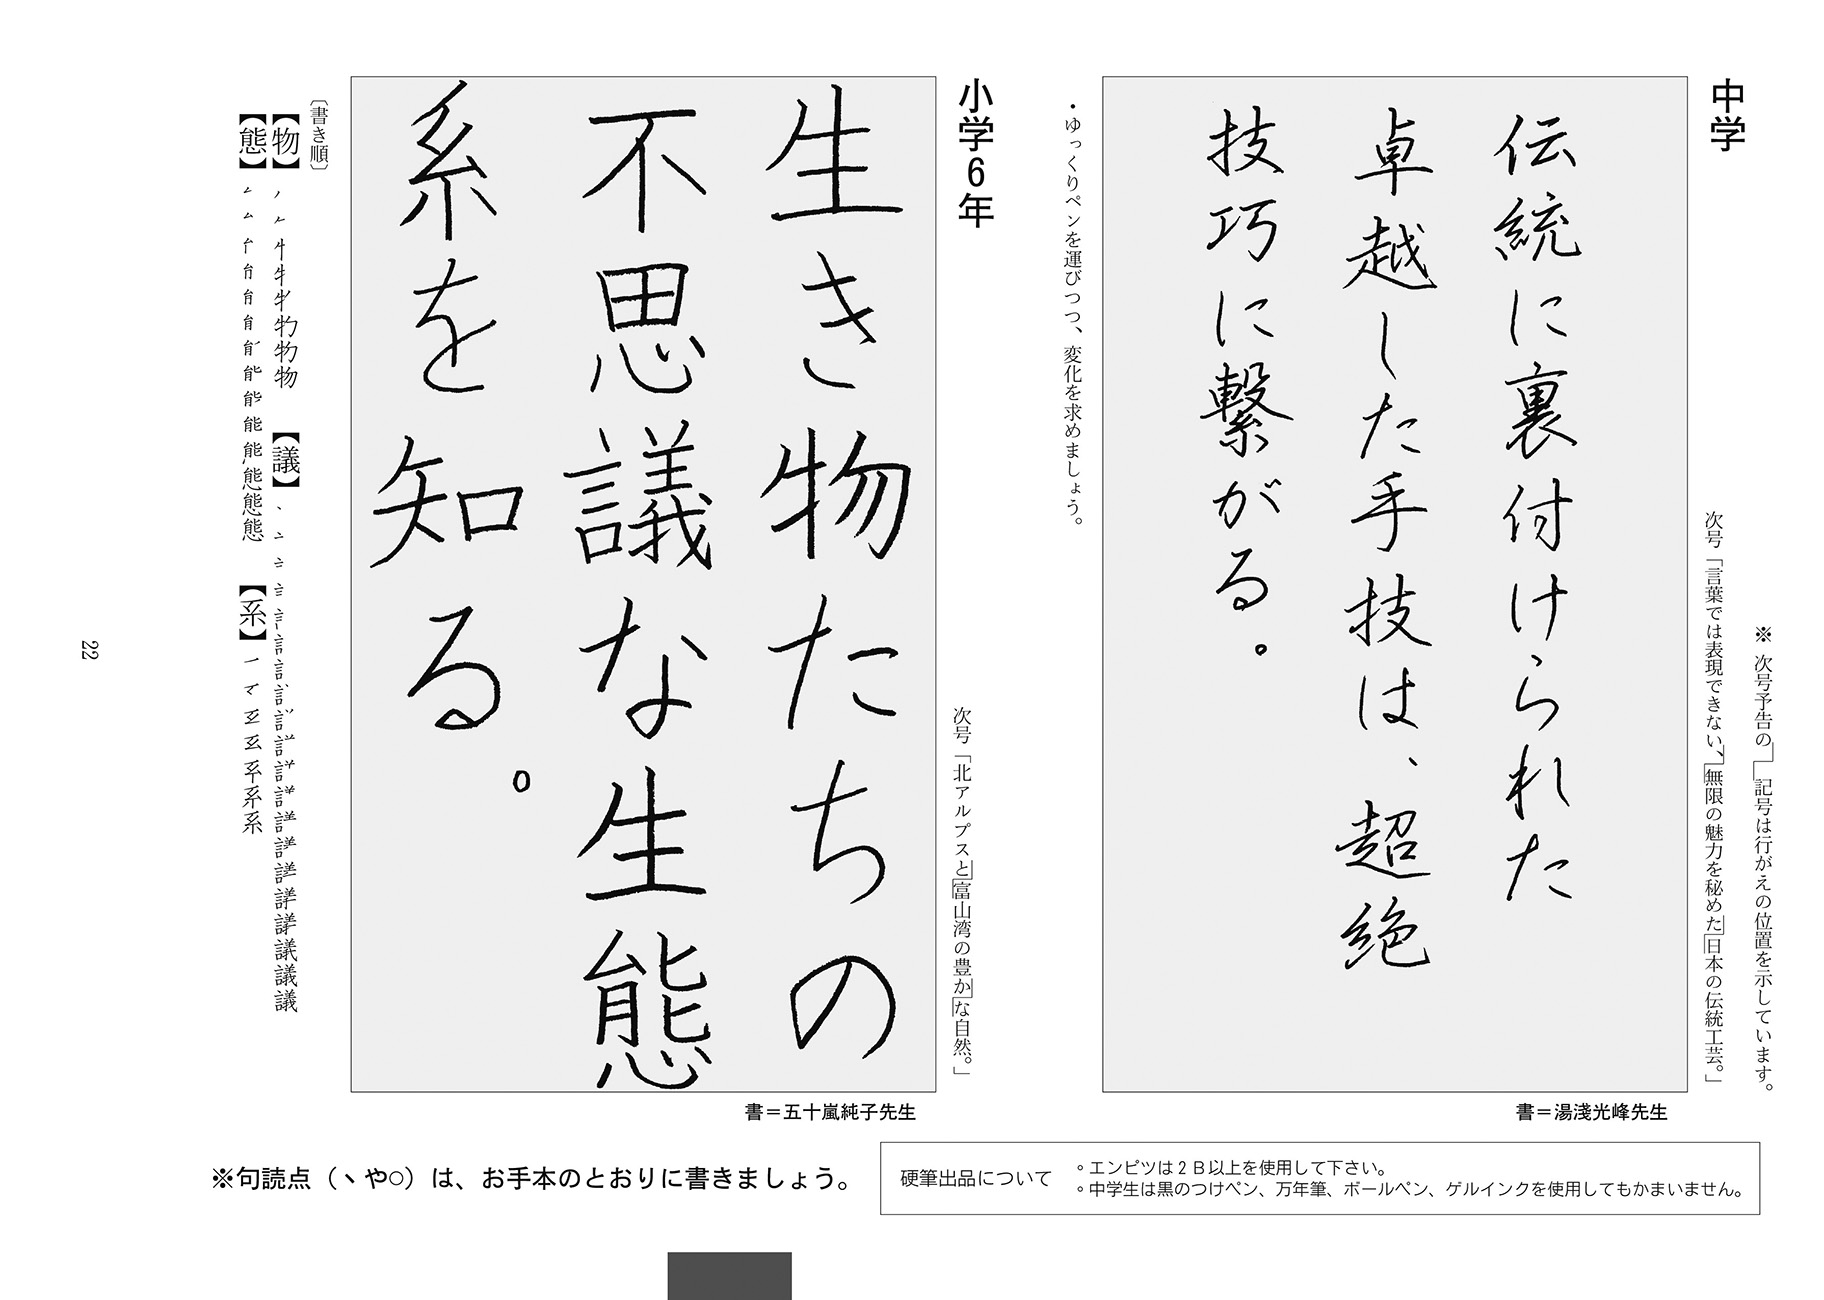 ※ 次号予告の」「記号は行がえの位置を示しています。
中学
次号「言葉では表現できない、」「無限の魅力を秘めた」「日本の伝統工芸。」
伝統に裏付けられた
卓越した手技は、超絶
技巧に繋がる。
書＝湯淺光峰先生
・ゆっくりペンを運びつつ、変化を求めましょう。
小学６年
次号「北アルプスと」「富山湾の豊か」「な自然。」
生き物たちの
不思議な生態
系を知る。
書＝五十嵐純子先生
〔書き順〕
【物】
【議】
【態】
【系】
22
※句読点（、や○）は、お手本のとおりに書きましょう。
硬筆出品について
。エンピツは２Ｂ以上を使用して下さい。
。中学生は黒のつけペン、万年筆、ボールペン、ゲルインクを使用してもかまいません。